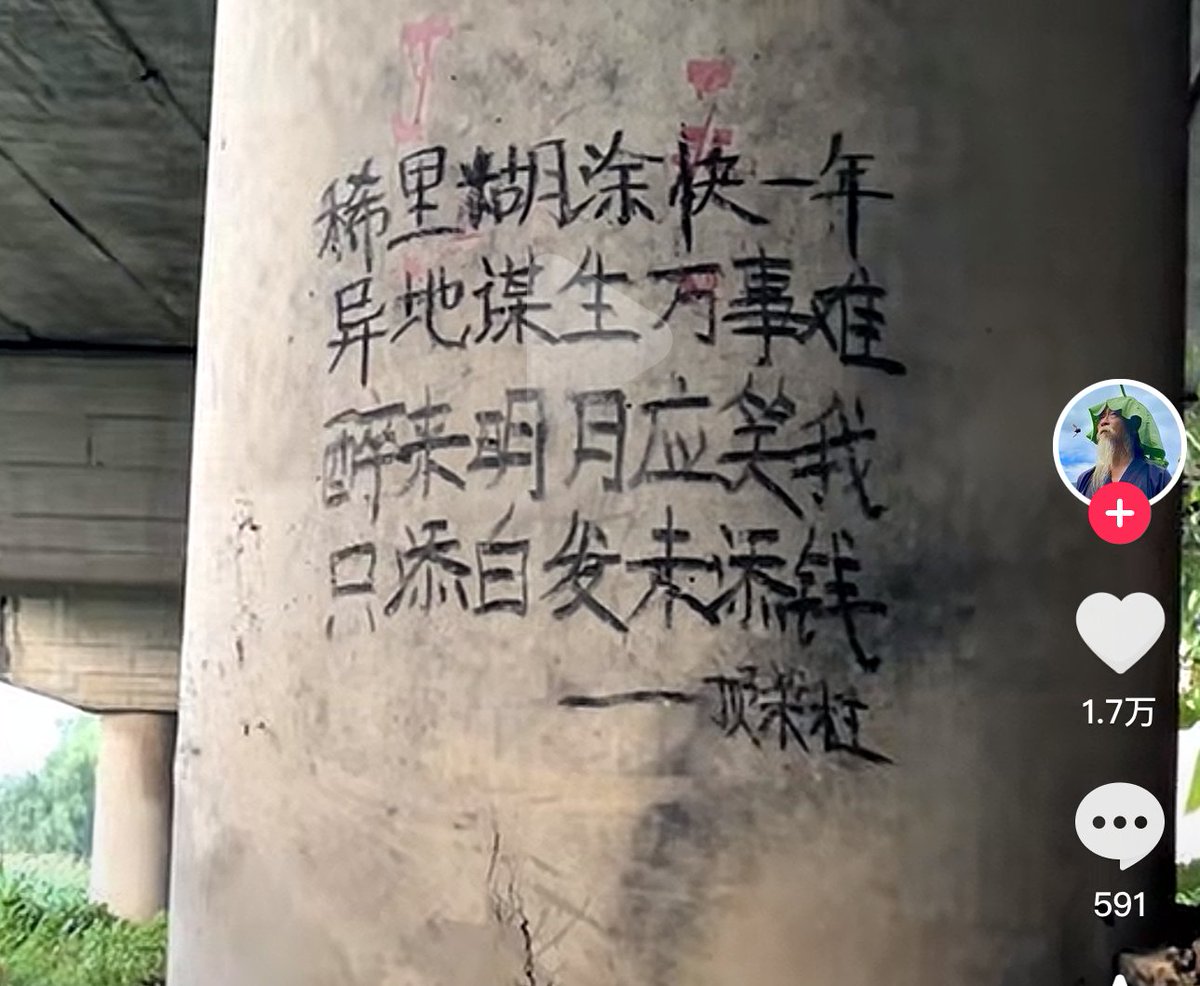 稀里糊涂快一年
异地谋生万事难
醉来明月应笑我
只添白发未添钱
1.7万
591